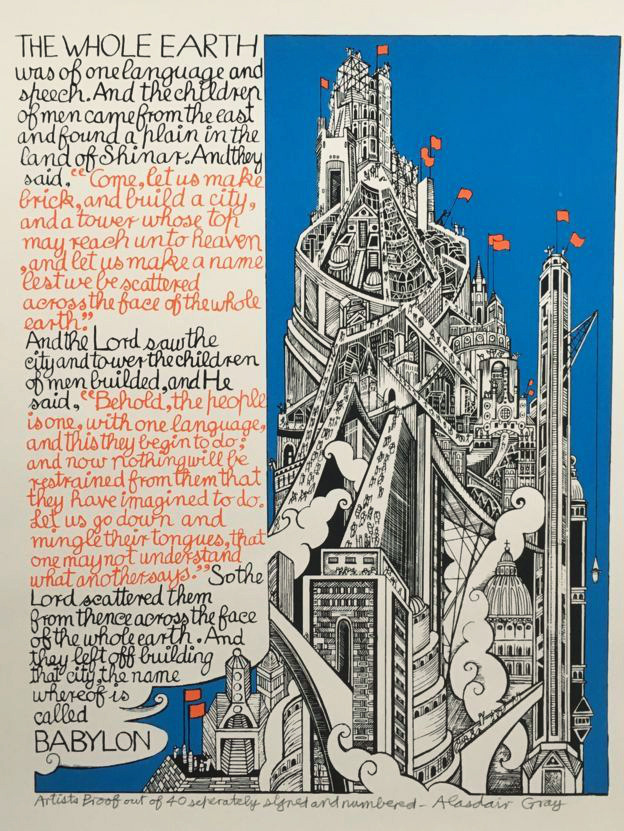 THE WHOLE EARTH
was of one language and
speech. And the children
of men came from the east
and found a plain in the
land of Shinar. And they
said, "Come, let us make
brick, and build a city,
and a tower whose top
may reach unto heaven
, and let us make a name
lest we be scattered
across the face of the whole
earth."
And the Lord saw the
city and tower the children
of men builded, and He
said, "Behold, the people
is one, with one language,
and this they begin to do;
and now nothing will be
restrained from them that
they have imagined to do.
Let us go down and
mingle their tongues, that
one may not understand
what another says." So the
Lord scattered them
from thence across the face
of the whole earth. And
they left off building
that city, the name
whereof is
called
BABYLON
Artists Proof out of 40 seperately signed and numbered - Alasdair Gray